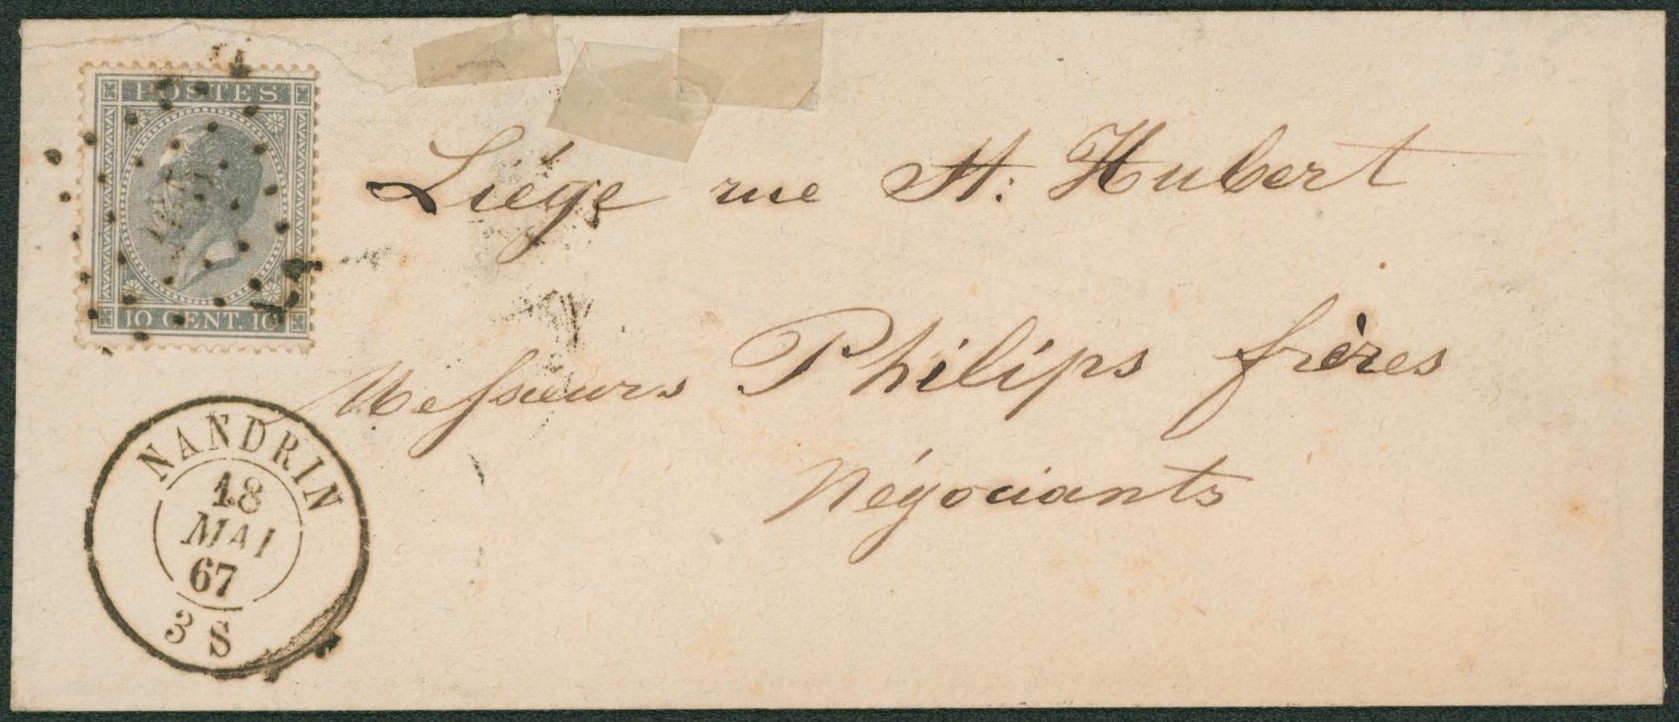 POSTES
10 CENT. 10
Liége rue St: Hubert
Messieurs Philips frères
Négociants
NANDRIN
18
MAI
67
3 S